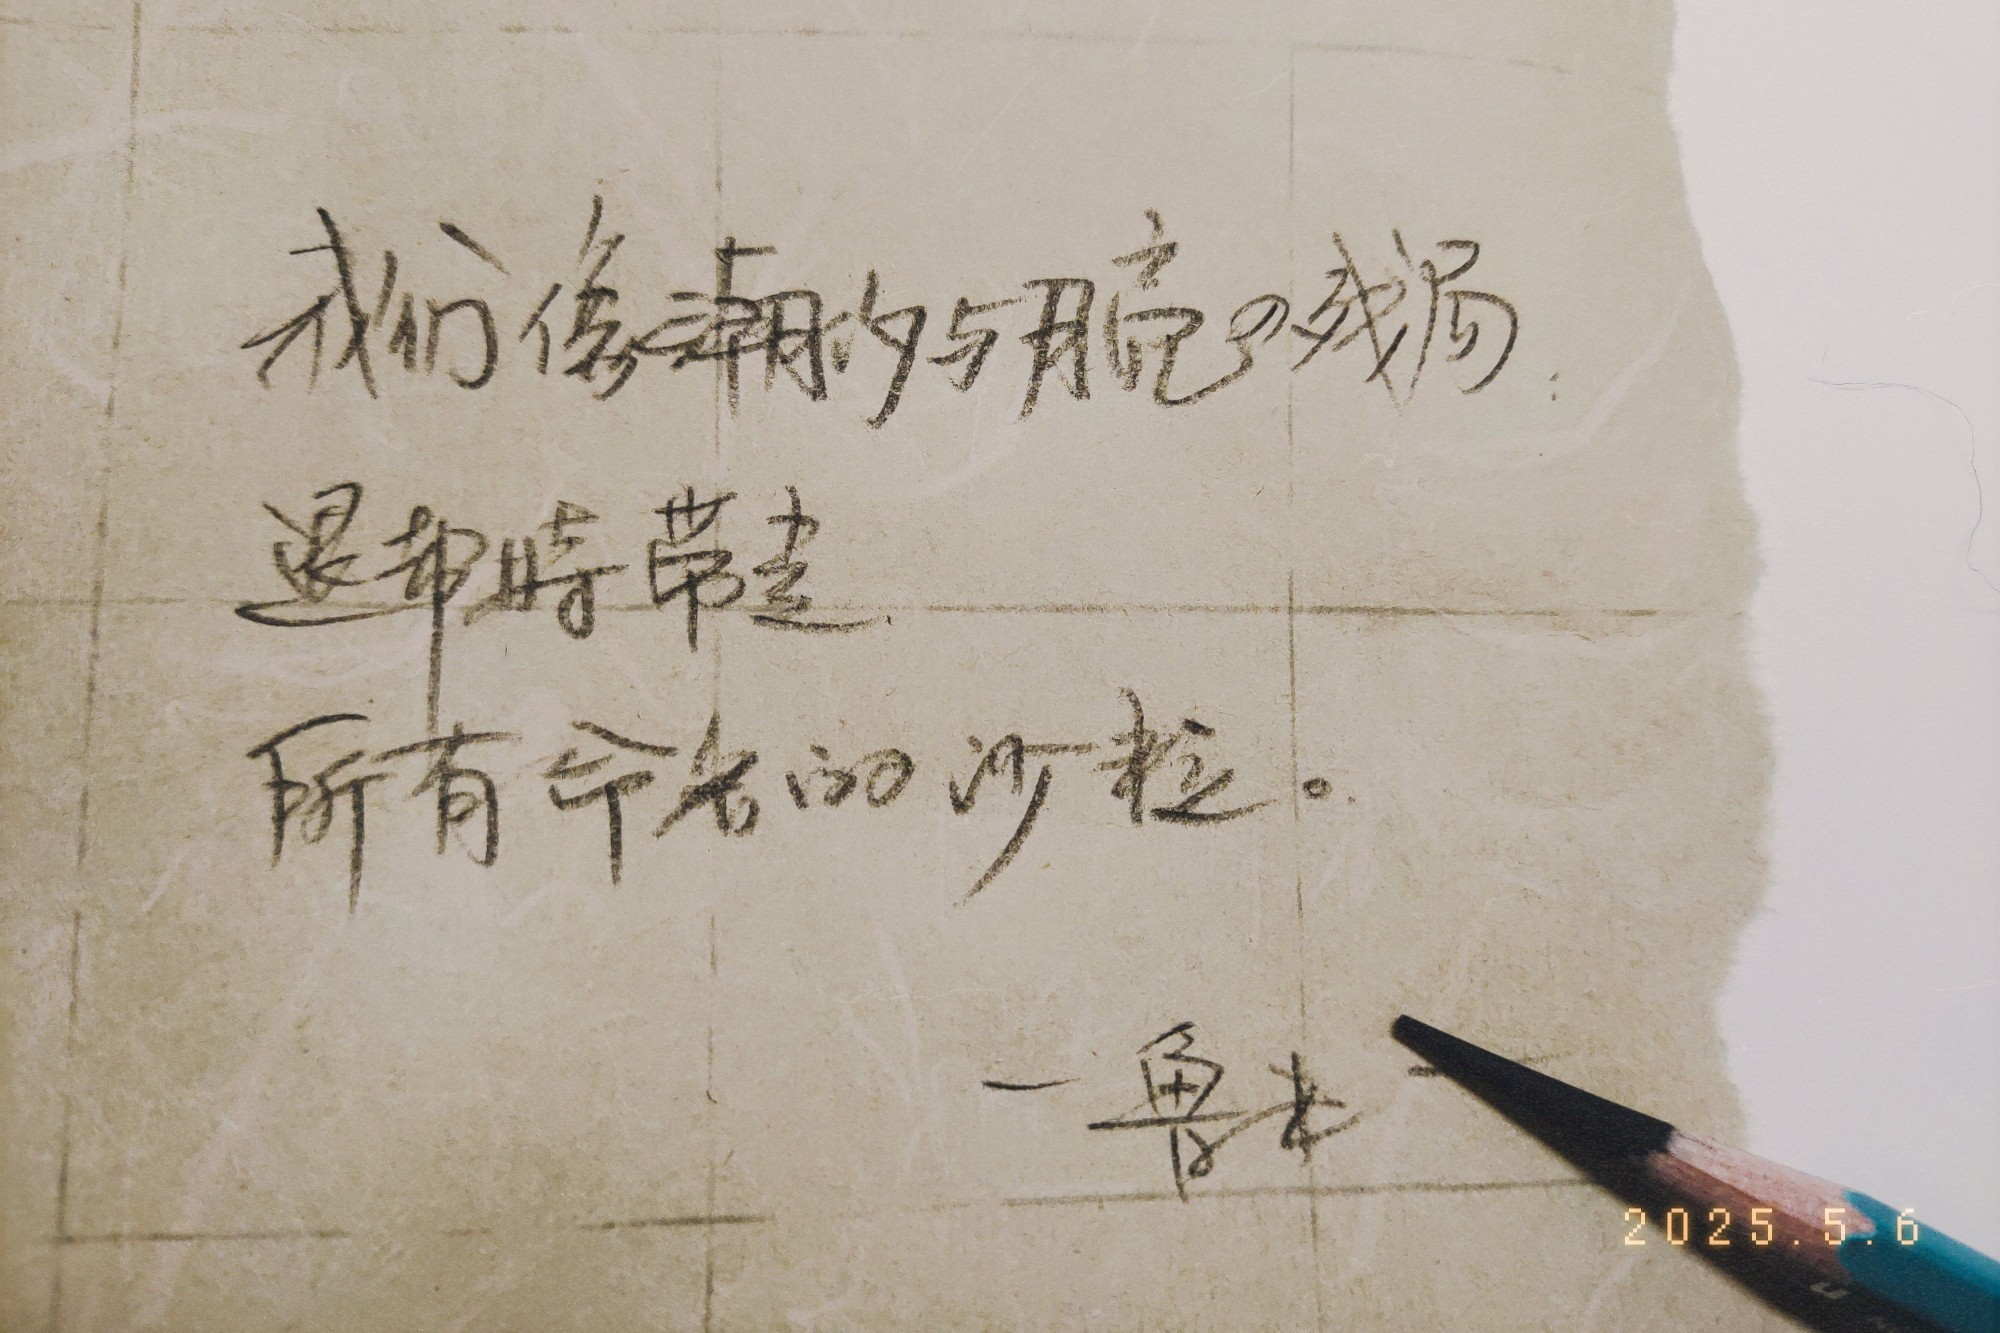 我们像潮汐与月亮的残局:
退却時带走
所有命名的沙粒。
一鲁米
2025.5.6